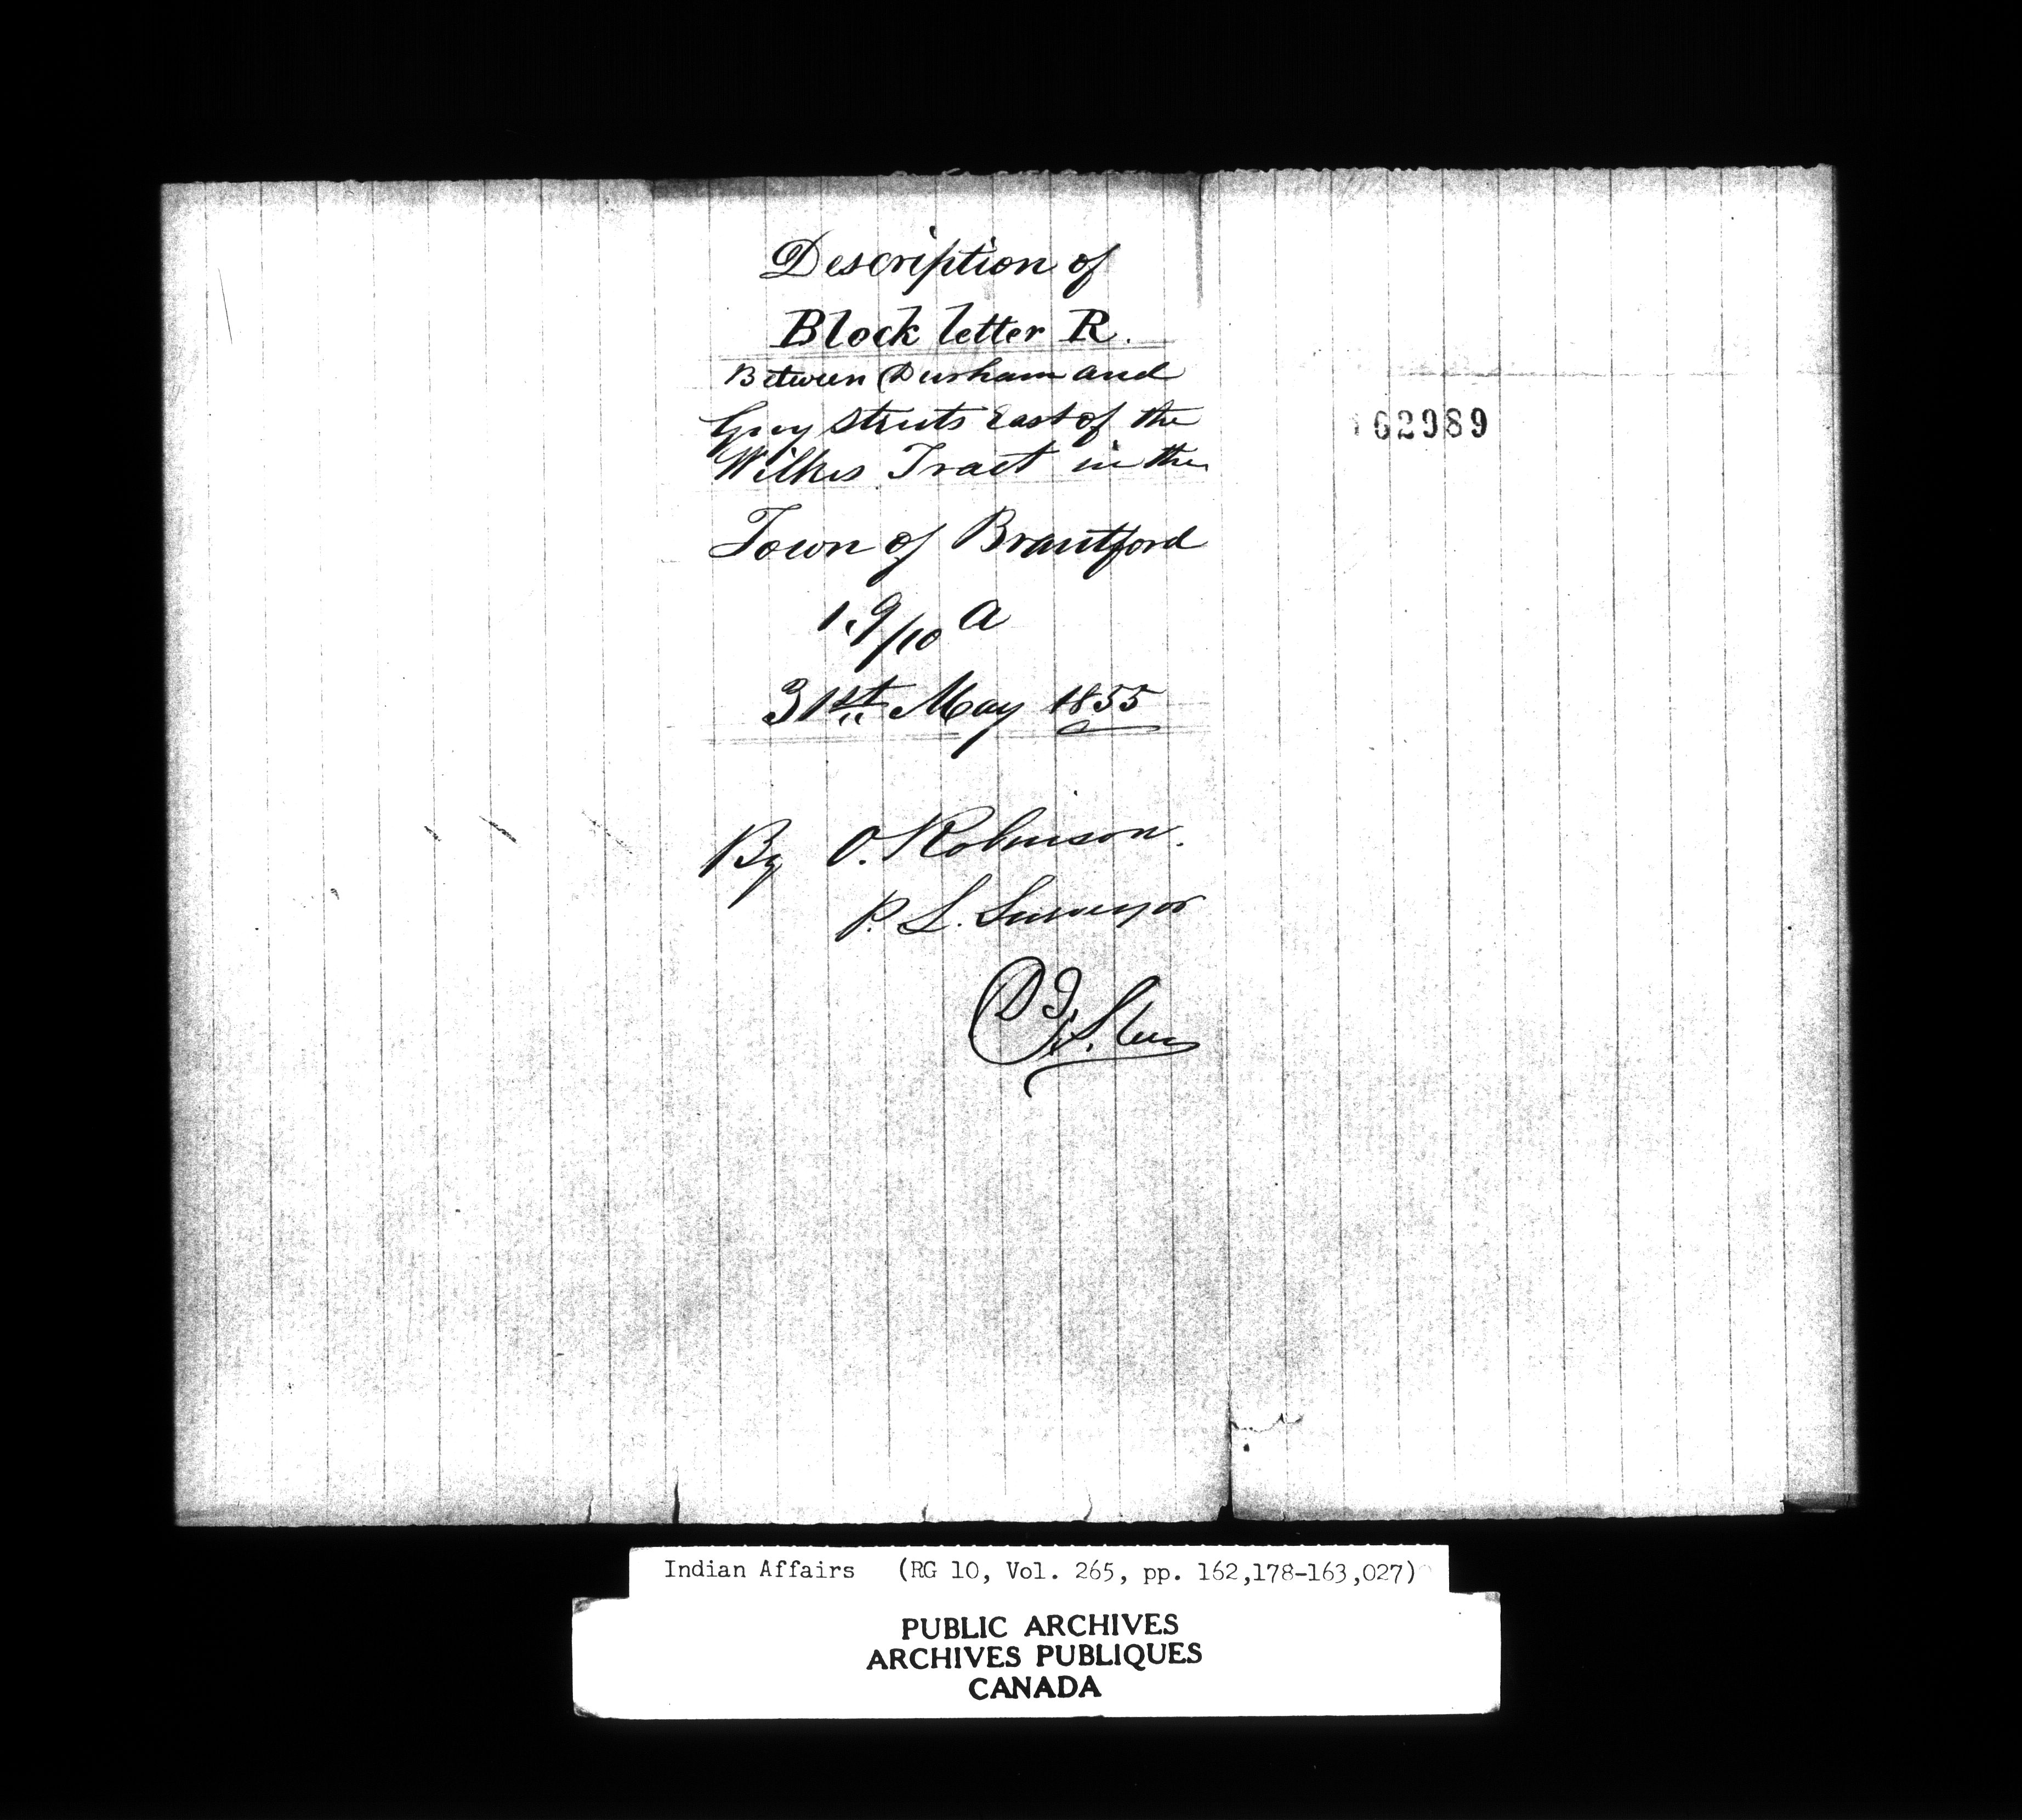 Description of
Block letter R.
Between Durham and
Grey Streets East of the
Wilkes Tract in the
Town of Brantford
1.9/10 a
31st May 1855
By O. Robinson.
P. L. Surveyor
162989
Indian Affairs (RG 10, Vol. 265, pp. 162,178-163,027)
PUBLIC ARCHIVES
ARCHIVES PUBLIQUES
CANADA